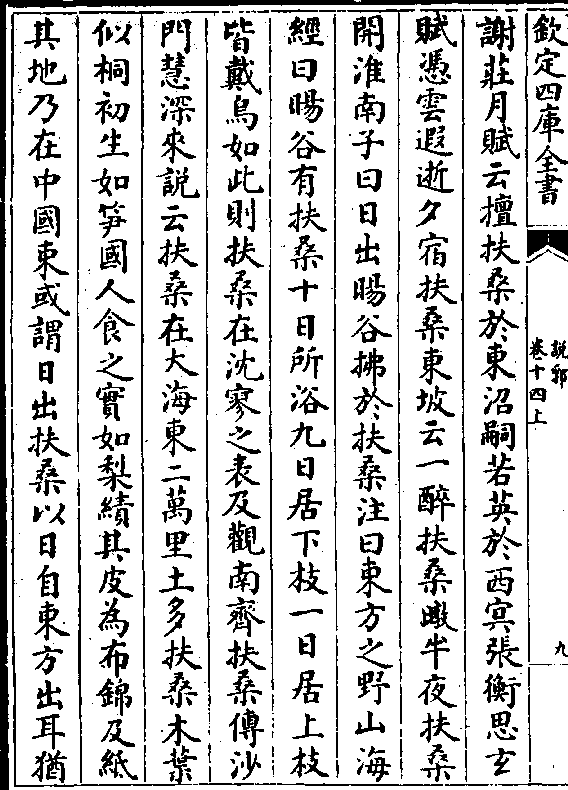 欽定四庫全書
說郛
卷十四上
九
謝莊月賦云擅扶桑於東沼嗣若英於西㝠張衡思玄
賦憑雲遐逝夕宿扶桑東坡云一醉扶桑暾半夜扶桑
開淮南子曰日出暘谷拂於扶桑注曰東方之野山海
經曰暘谷有扶桑十日所浴九日居下枝一日居上枝
皆戴烏如此則扶桑在沈寥之表及觀南齊扶桑傳沙
門慧深來說云扶桑在大海東二萬里土多扶桑木葉
似桐初生如笋國人食之實如梨績其皮為布錦及紙
其地乃在中國東或謂日出扶桑以日自東方出耳猶